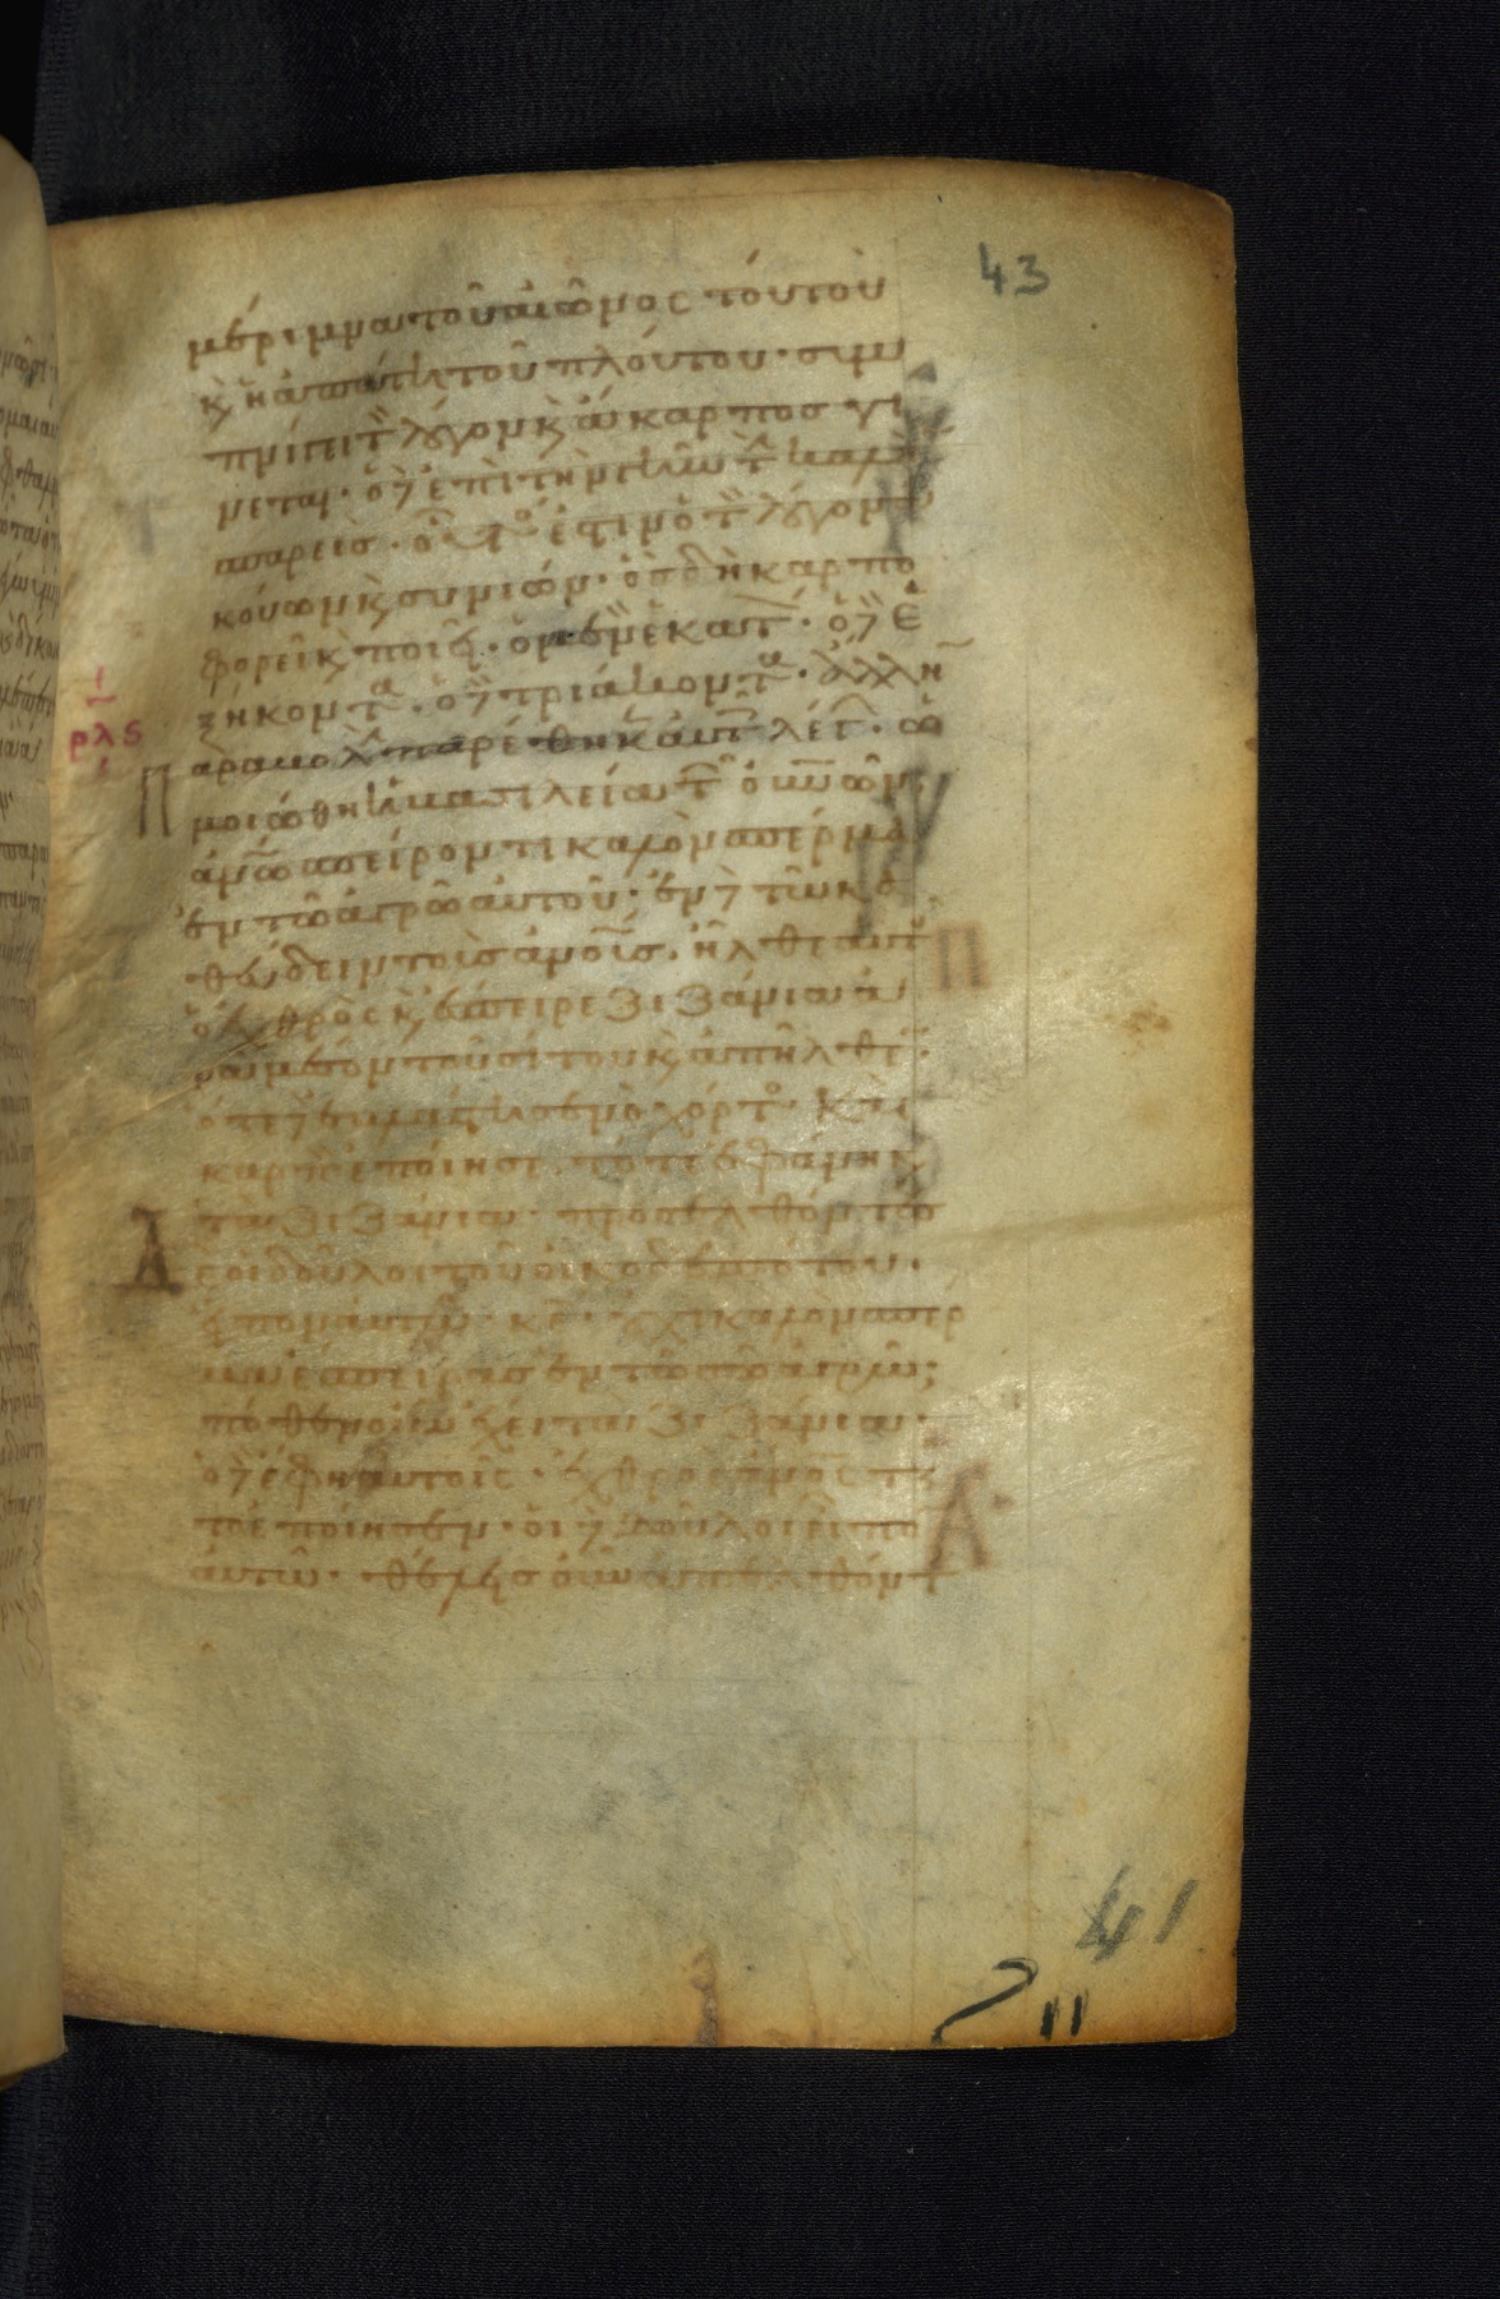 43
μέριμνα τοῦ αἰῶνος τούτου
κ ἡ ἀπάτη τοῦ πλούτου· συμ
πνίγει τ λόγον κ ἄκαρπος γί
νεται· ὁ δ ἐπὶ τὴν γῆν τ καλ
σπαρεὶς· οὗτ ἐστιν ὁ τ λόγον
ἀκούων κ συνιών· ὃς δὴ καρπο
φορεῖ κ ποιεῖ· ὁ μὲν ἑκατ· ὁ δ ἑ
ξήκοντα· ὁ δ τριάκοντα· ἄλλην
ρλς
Π
αραβολ παρέθηκ αὐτ λέγ· ὡ
μοιώθη ἡ βασιλεία τ οὐνων
ἀνω σπείροντι καλὸν σπέρμα
ἐν τῶ ἀγρῶ αὐτοῦ· ἐν δ τῶ κα
θεύδειν τοὺς ἀνους· ἦλθεν αὐτ
ὁ ἐχθρὸς κ ἔσπειρε ζιζάνια ἀ
ναμέσον τοῦ σίτου κ ἀπῆλθεν·
ὅτε δ ἐβλάστησεν ὁ χόρτο κ
καρπ ἐποίησε· τότε ἐφάνη κ
τὰ ζιζάνια· προσελθόντες
Δ
ε οἱ δοῦλοι τοῦ οἰκοδεσπότου·
εἶπον αὐτῶ· κε· οὐχὶ καλὸν σπέρ
μα ἔσπειρας ἐν τῶ σῶ ἀγρῶ;
πόθεν οὖν ἔχει τὰ ζιζάνια·
ὁ δ ἔφη αὐτοῖς· ἐχθρὸς ανος τ
το ἐποίησεν· οἱ δ δοῦλοι εἶπο
αὐτῶ· θέλεις οὖν ἀπελθόντ
41